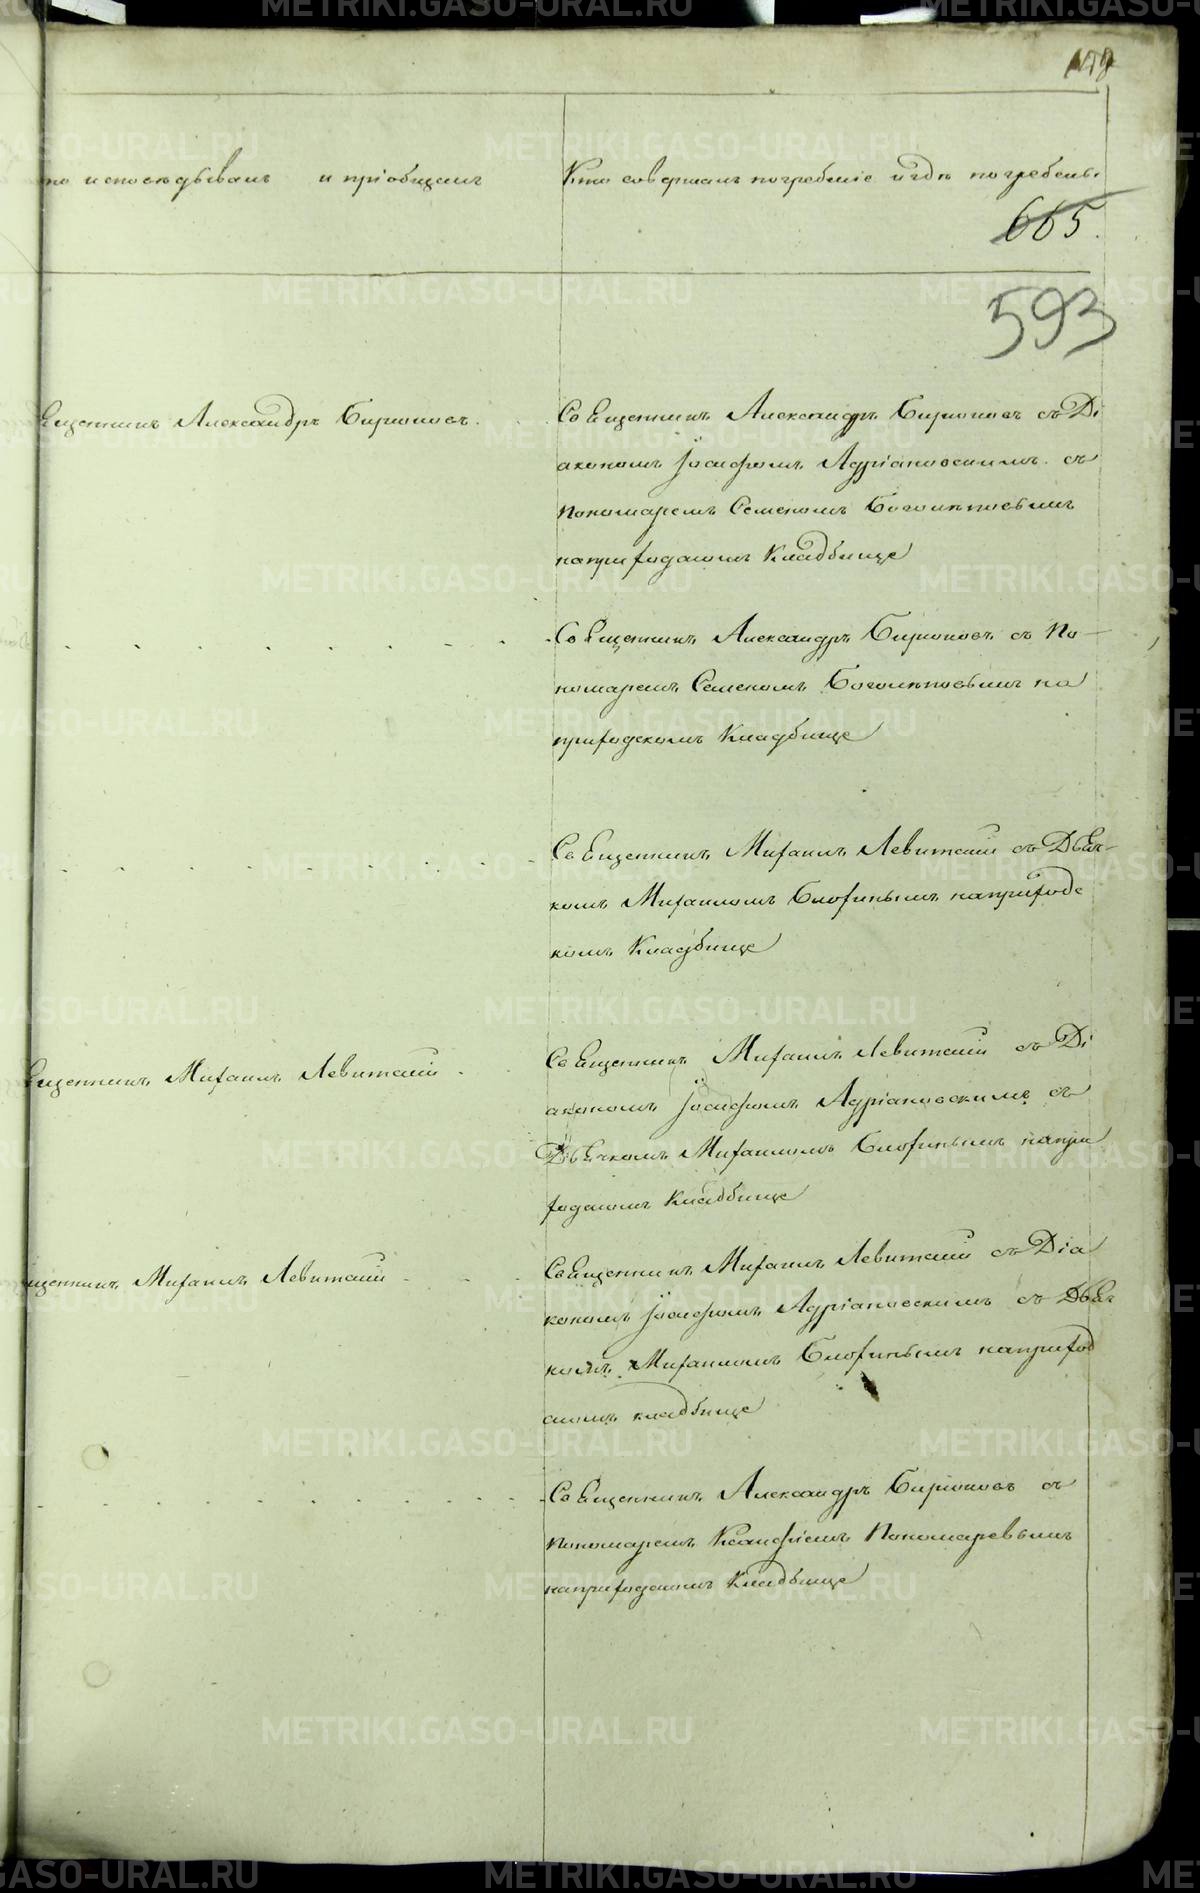 то исповѣдывалъ и пріобщалъ
Кто совершалъ погребеніе и гдѣ погребены.
665.
593
Священникъ Александръ Бирюковъ.
Священникъ Александръ Бирюковъ съ Ді
акономъ Іосифомъ Адріановскимъ съ
Пономаремъ Семеномъ Боголѣповымъ
на приходскомъ Кладбище
Священникъ Александръ Бирюковъ съ По
номаремъ Семеномъ Боголѣповымъ на
приходскомъ Кладбище
Священникъ Михаилъ Левитскій съ Дьяч-
комъ Михаиломъ Блохинымъ на приходс
комъ Кладбище
вященникъ Михаилъ Левитскій
Священникъ Михаилъ Левитскій съ Ді
акономъ Іосифомъ Адріановскимъ съ
Дьячкомъ Михаиломъ Блохинымъ на при
ходскомъ Кладбище
щенникъ Михаилъ Левитскій
Священникъ Михаилъ Левитскій съ Діа
кономъ Іосифомъ Адріановскимъ съ Дьяч
комъ Михаиломъ Блохинымъ на приход
скомъ кладбище
Священникъ Александръ Бирюковъ съ
Пономаремъ Пономаревымъ
на приходскомъ Кладбище
METRIKI.GASO-URAL.RU